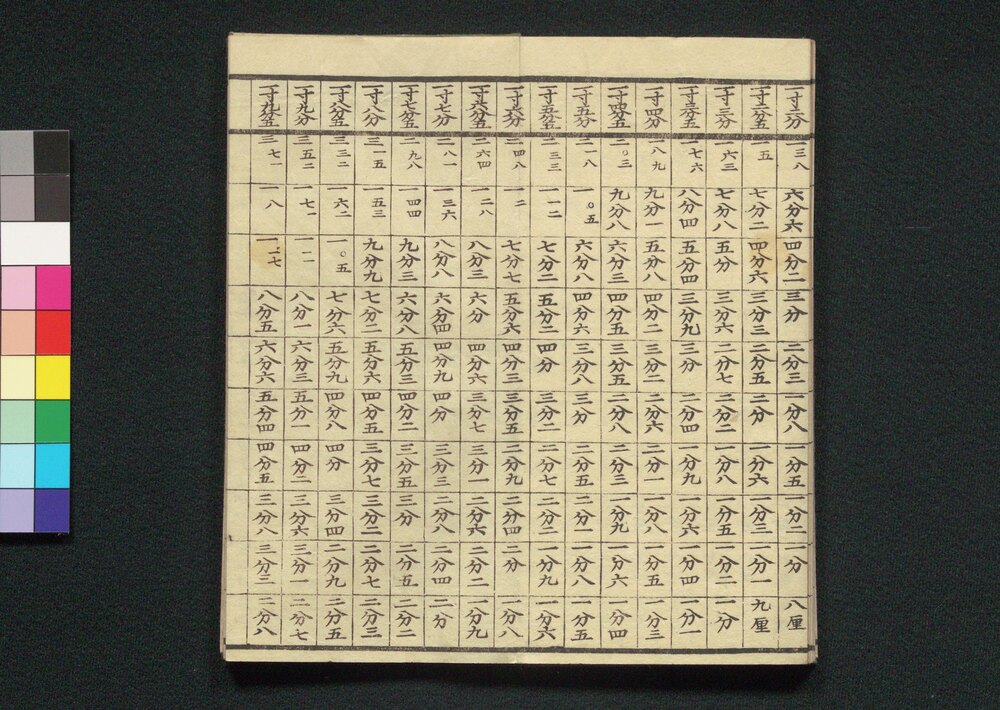 一寸二分 一三八 六分六 四分二 三分 二分三 一分八 一分五 一分二 一分 八厘
一寸二分五 一五 七分二 四分六 三分三 二分五 二分 一分六 一分三 一分一 九厘
一寸三分 一六三 七分八 五分 三分六 二分七 二分二 一分八 一分五 一分二 一分
一寸三分五 一七六 八分四 五分四 三分九 三分 二分四 一分九 一分六 一分四 一分一
一寸四分 一八九 九分一 五分八 四分二 三分二 二分六 二分一 一分八 一分五 一分三
一寸四分五 二〇三 九分八 六分三 四分五 三分五 二分八 二分三 一分九 一分六 一分四
一寸五分 二一八 一〇五 六分八 四分六 三分八 三分 二分五 二分一 一分八 一分五
一寸五分五 二三三 一一二 七分二 五分二 四分 三分二 二分七 二分二 一分九 一分六
一寸六分 二四八 一二 七分七 五分六 四分三 三分五 二分九 二分四 二分 一分八
一寸六分五 二六四 一二八 八分三 六分 四分六 三分七 三分一 二分六 二分二 一分九
一寸七分 二八一 一三六 八分八 六分四 四分九 四分 三分三 二分八 二分四 二分
一寸七分五 二九八 一四四 九分三 六分八 五分三 四分二 三分五 三分 二分五 二分二
一寸八分 三一五 一五三 九分九 七分二 五分六 四分五 三分七 三分二 二分七 二分三
一寸八分五 三三二 一六二 一〇五 七分六 五分九 四分八 四分 三分四 二分九 二分五
一寸九分 三五二 一七一 一一一 八分一 六分三 五分一 四分二 三分六 三分一 二分七
一寸九分五 三七一 一八 一一七 八分五 六分六 五分四 四分五 三分八 三分三 二分八